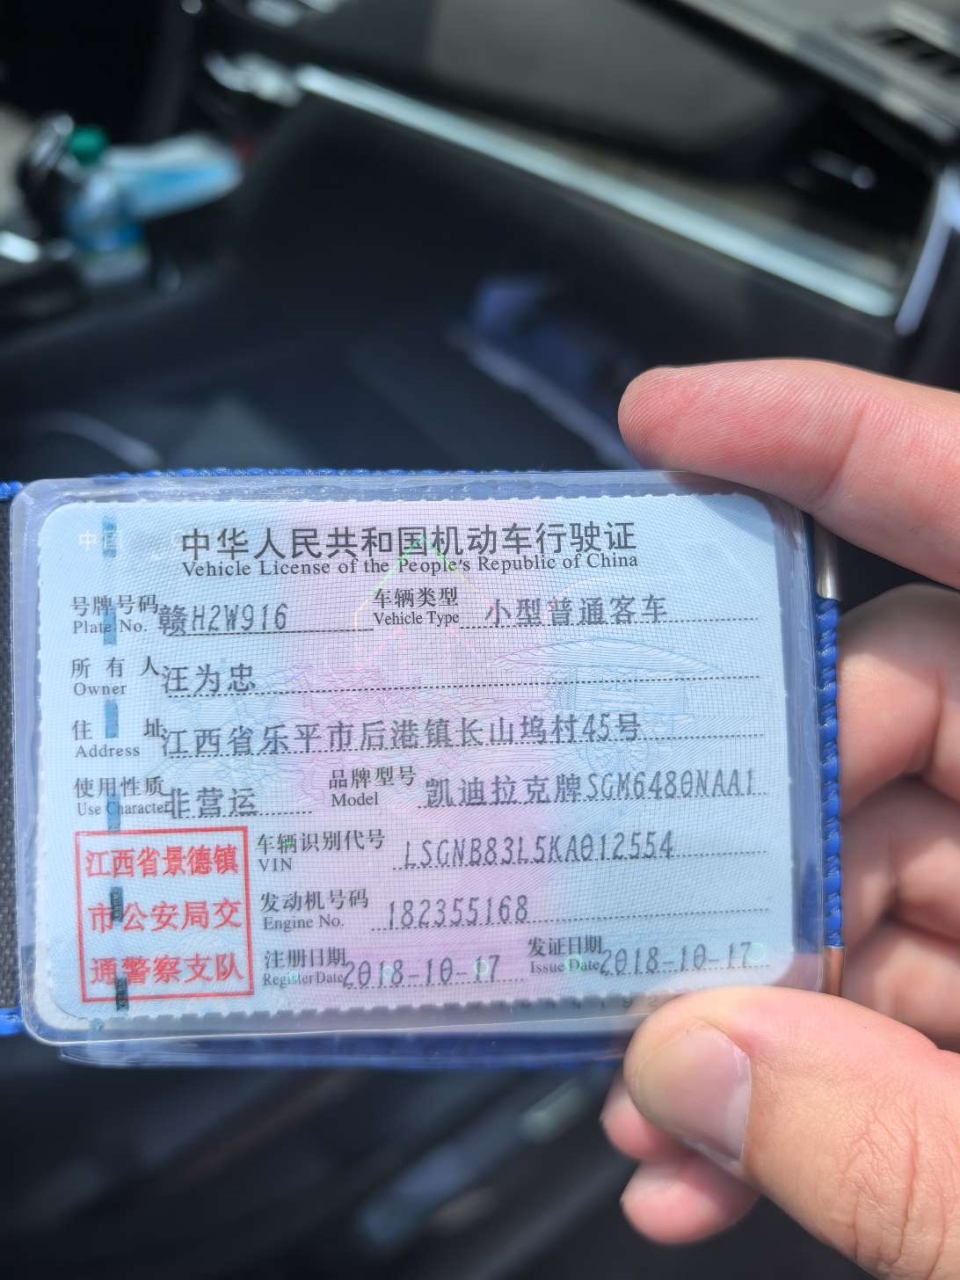 中华人民共和国机动车行驶证
Vehicle License of the People's Republic of China
号牌号码 赣H2W916 车辆类型 小型普通客车
Plate No. Vehicle Type
所有人 汪为忠
Owner
住址 江西省乐平市后港镇长山坞村45号
Address
使用性质 非营运 品牌型号 凯迪拉克牌SGM6480NAA1
Use Character Model
江西省景德镇
市公安局交
通警察支队
车辆识别代号 LSGNB83L5KA012554
VIN
发动机号码 182355168
Engine No.
注册日期 2018-10-17 发证日期 2018-10-17
Register Date Issue Date